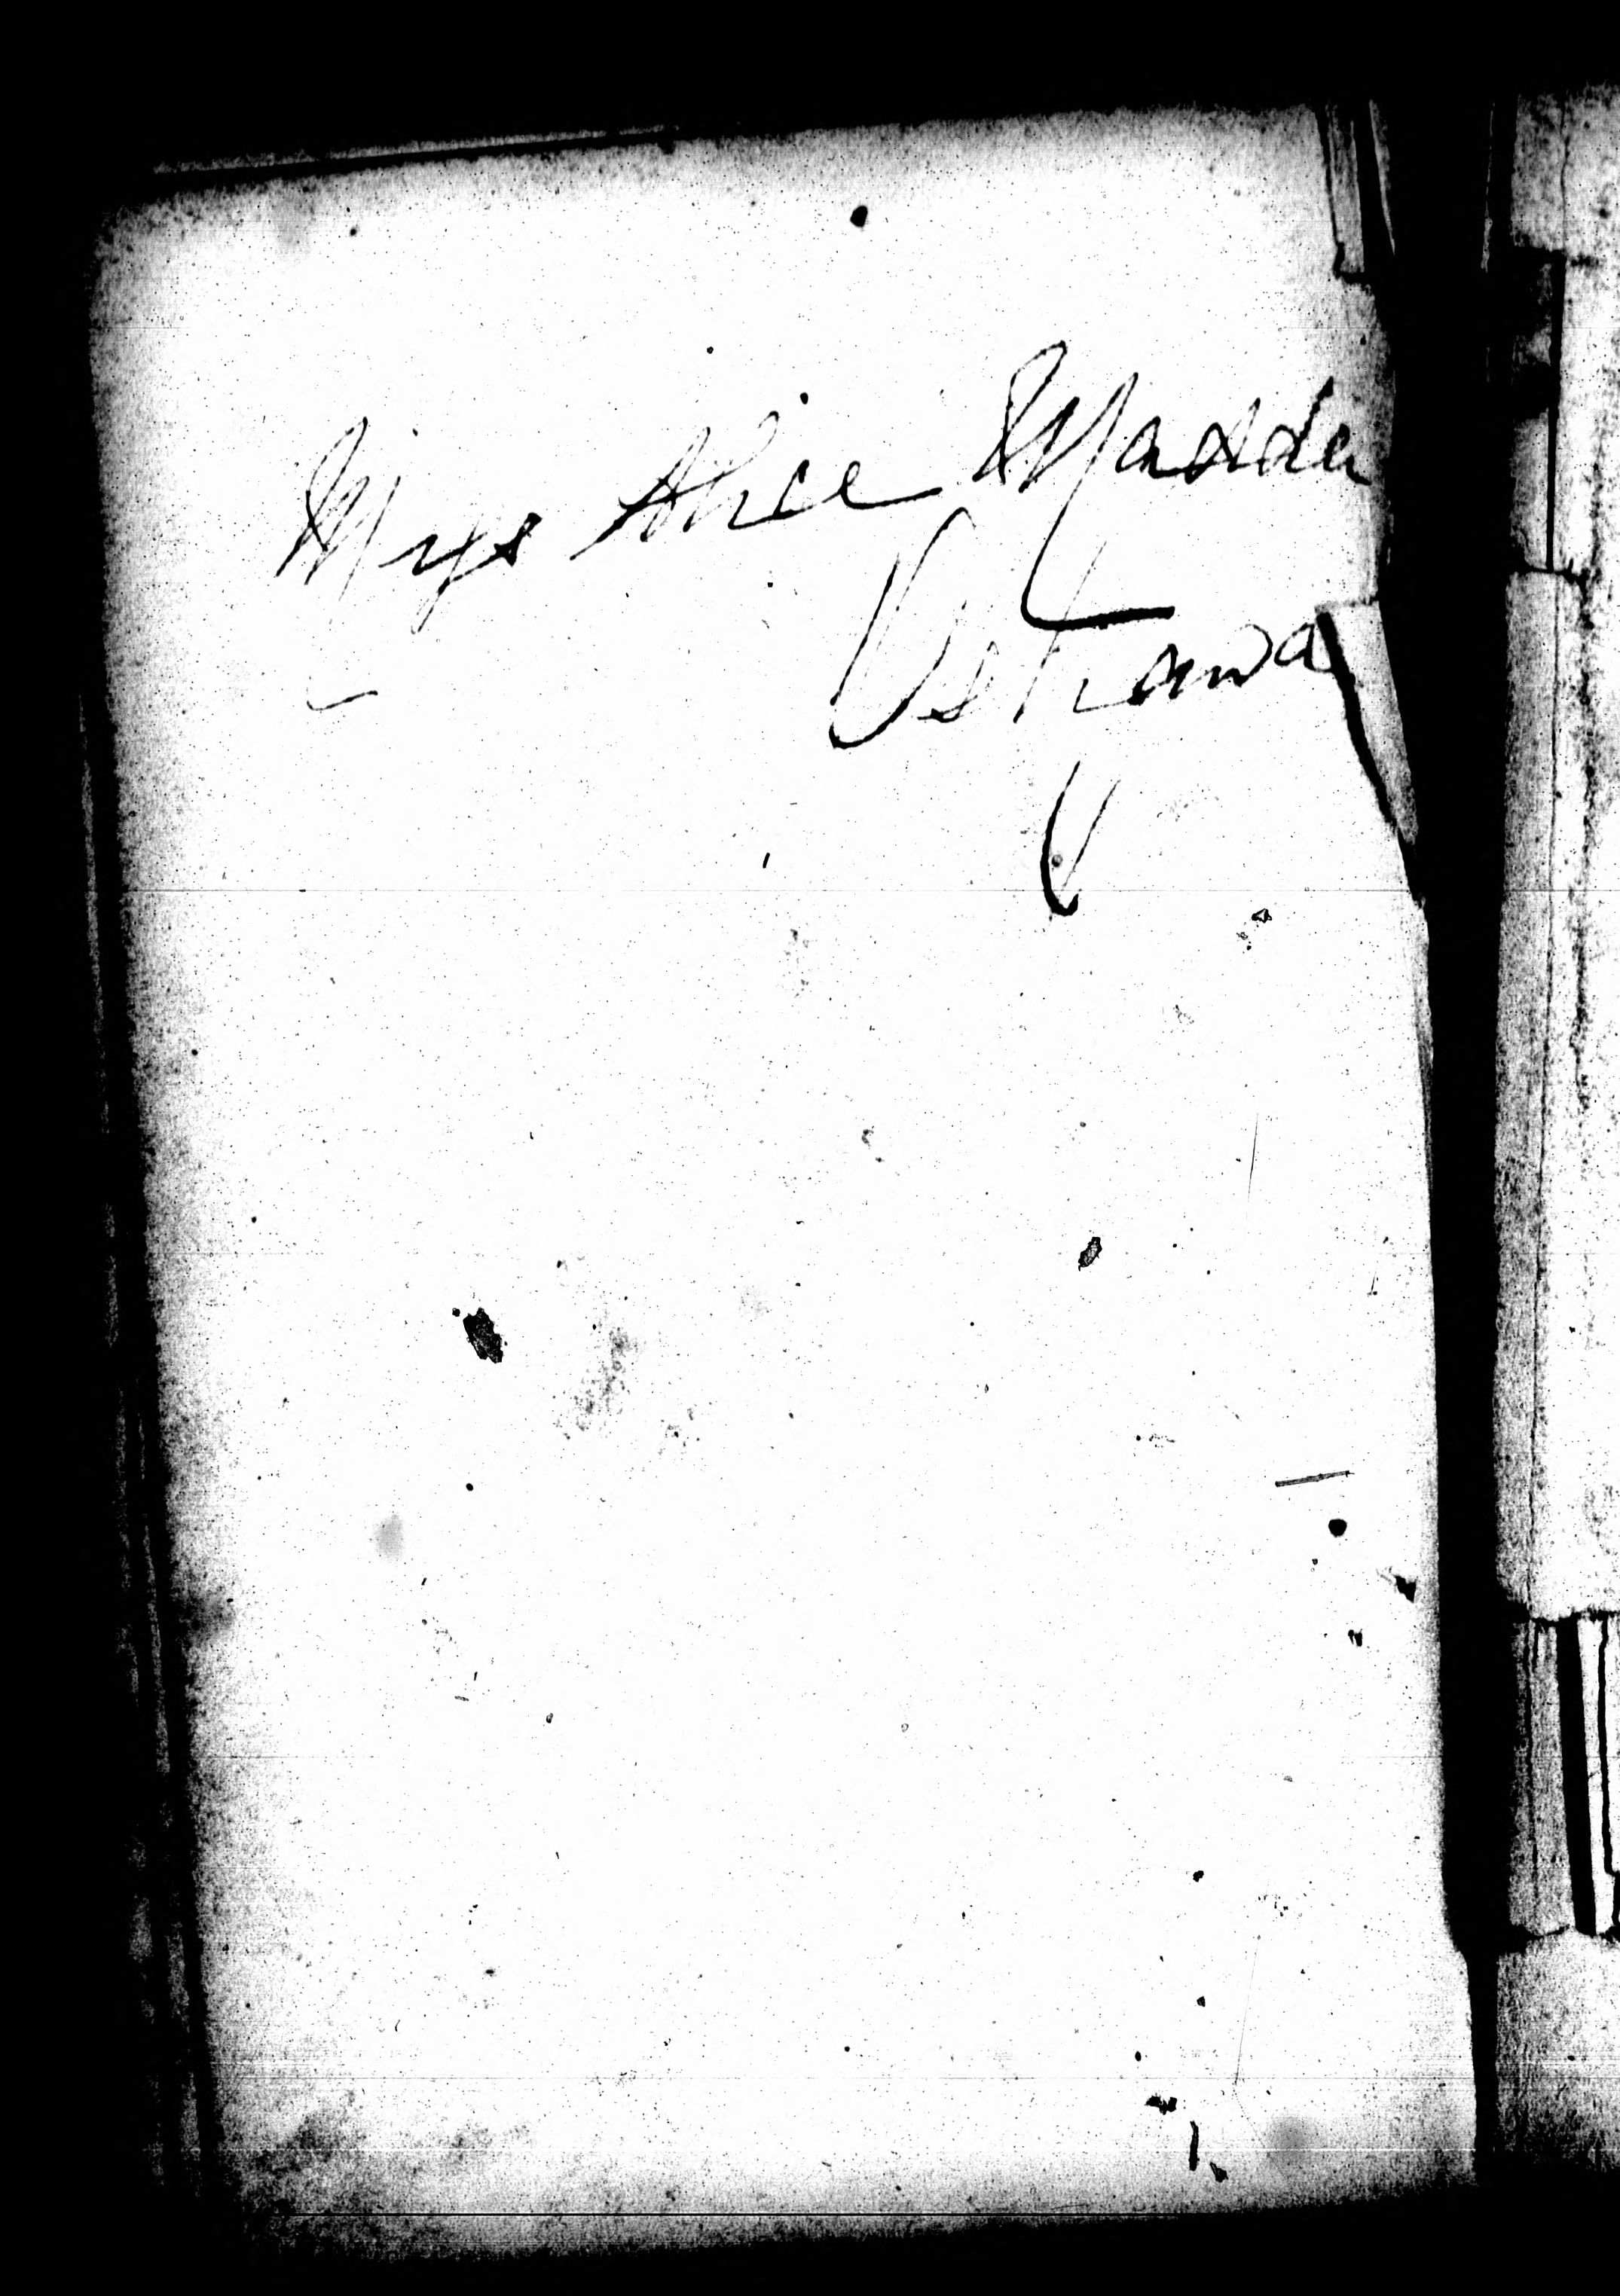 Miss Alice Madden
Oshawa